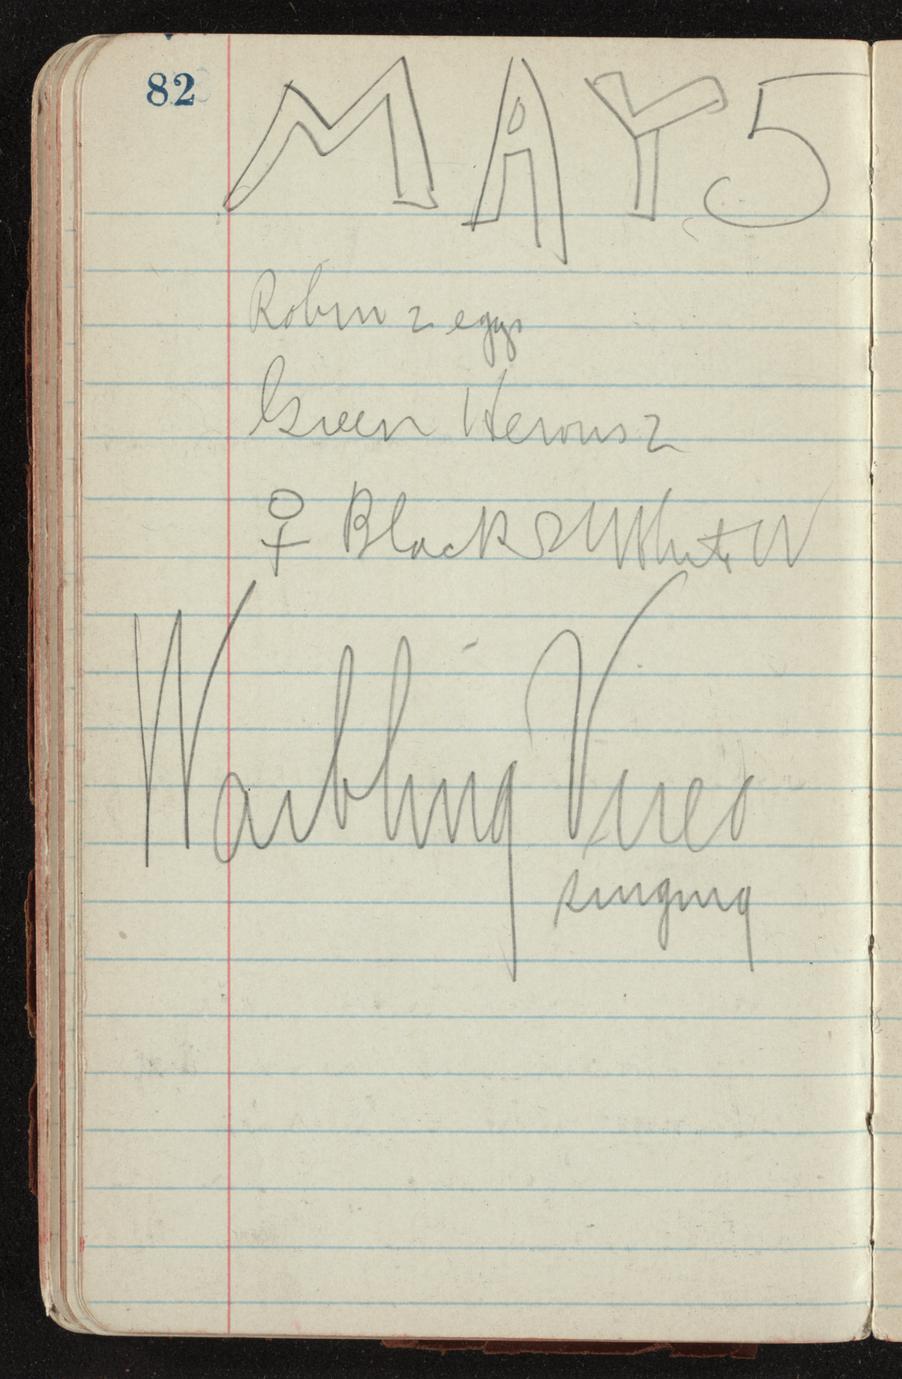 82
MAY 5
Robin 2 eggs
Green Herons 2
♀ Black & White W
Warbling Vireo
singing